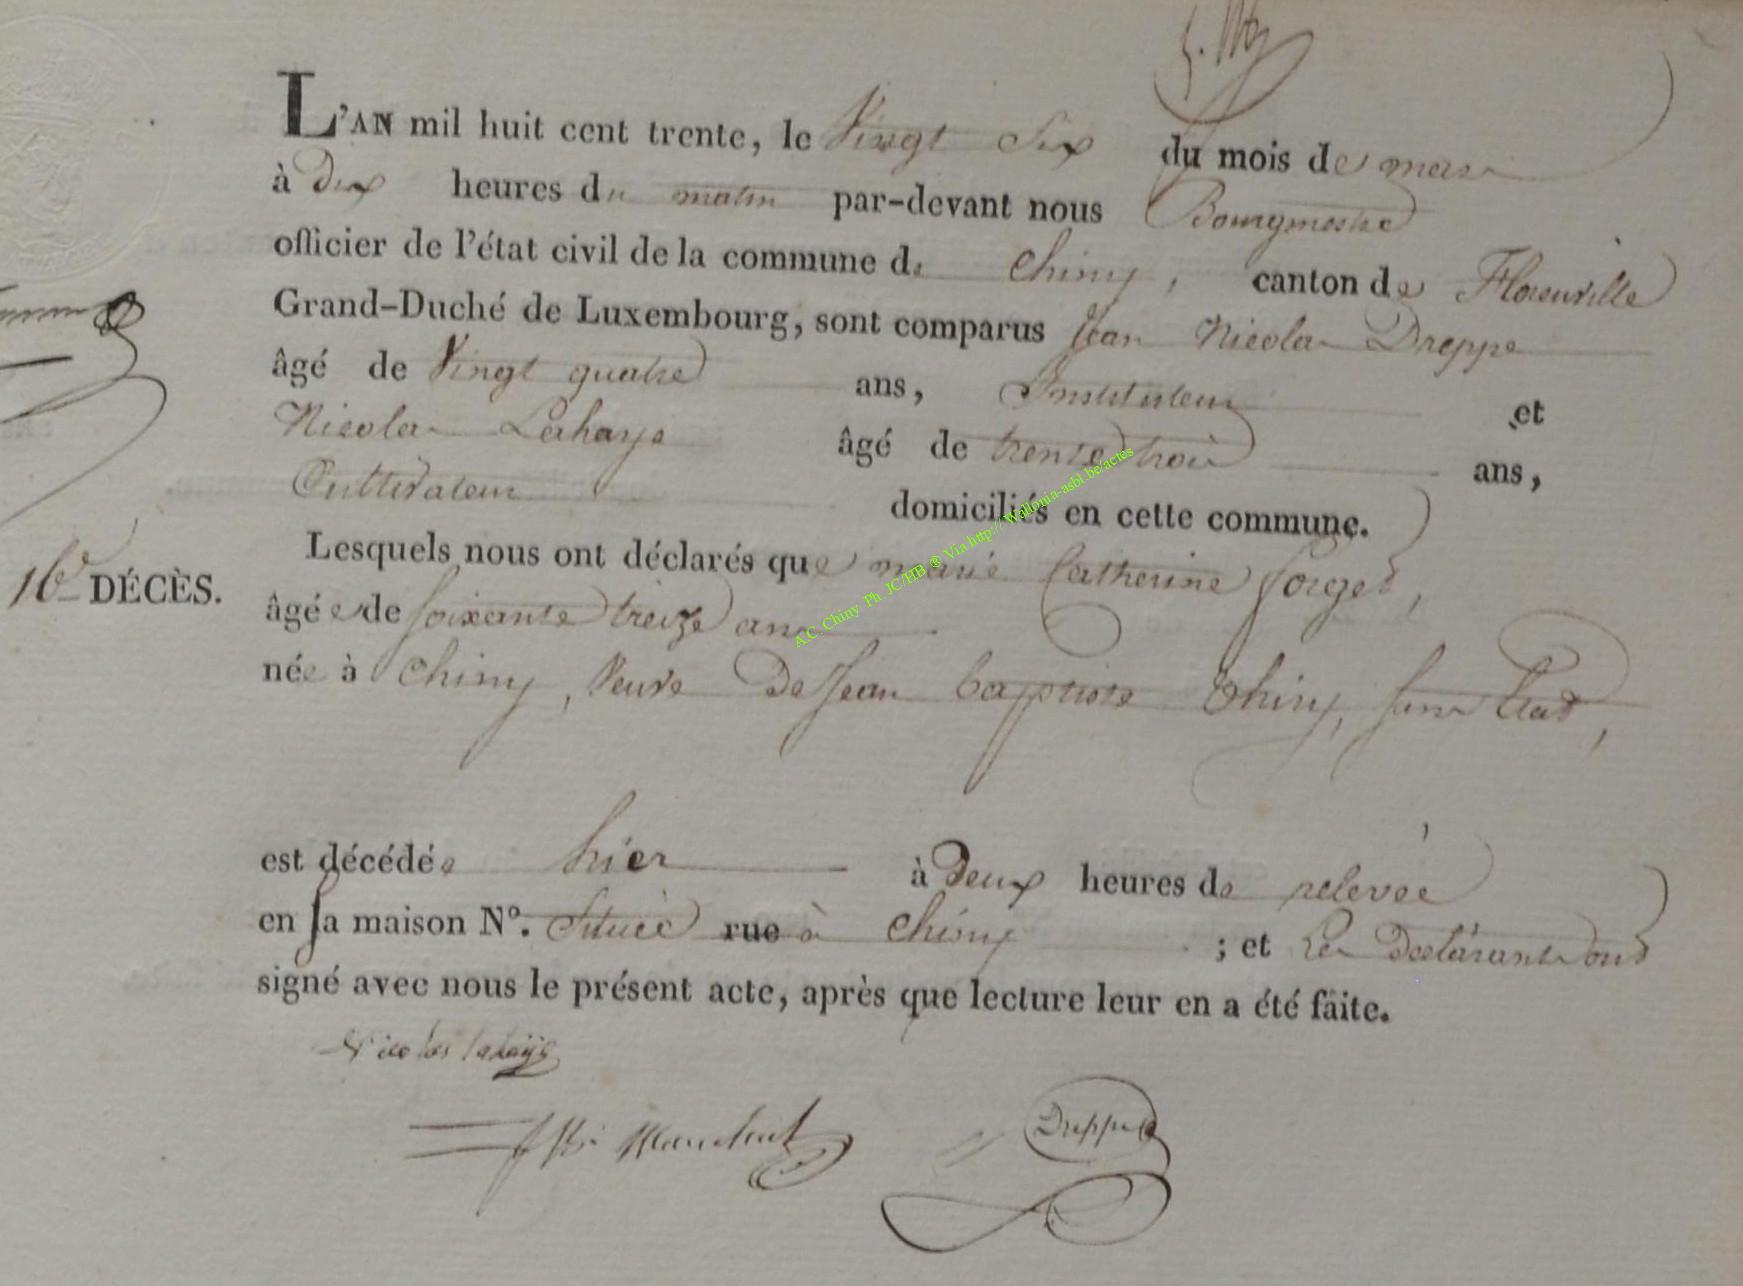 L'AN mil huit cent trente, le Vingt Six du mois de mars
à Dix heures du matin par-devant nous Bourgmestre
officier de l'état civil de la commune de Chiny, canton de Florenville
Grand-Duché de Luxembourg, sont comparus Jean Nicolas Dreppe
âgé de Vingt quatre ans, Instituteur et
Nicolas Lahaye âgé de trente trois ans,
Cultivateur domiciliés en cette commune.
Lesquels nous ont déclarés que marie Catherine forget,
16e DÉCÈS.
âgée de soixante treize ans
née à Chiny, Veuve De Jean baptiste Thiry, sans Etat,
est décédée hier à Deux heures de relevée
en sa maison N°. Située rue à Chiny ; et Les Déclarants ont
signé avec nous le présent acte, après que lecture leur en a été faite.
Nicolas lahaye
Dreppe
A.C. Chiny Ph. JC/HB ® Via http://Wallonia-asbl.be/actes